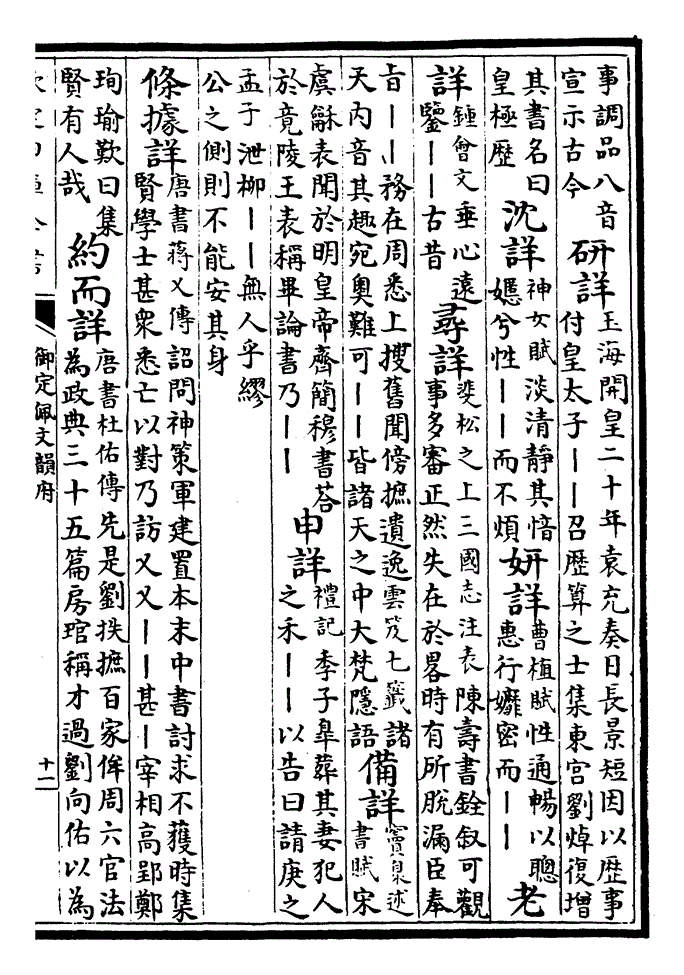 事調品八音
宣示古今
研詳
玉海開皇二十年袁充奏日長景短因以歷事
付皇太子丨丨召歷算之士集東宮劉焯復增
其書名曰
皇極歷
沈詳
神女賦淡清靜其愔
嫕兮性丨丨而不煩
妍詳
曹植賦性通暢以聰
惠行孊密而丨丨
老
詳
鍾會文垂心遠
鑒丨丨古昔
尋詳
裴松之上三國志注表陳壽書銓叙可觀
事多審正然失在於畧時有所脫漏臣奉
旨丨丨務在周悉上搜舊聞傍摭遺逸雲笈七籤諸
天內音其趣宛奥難可丨丨皆諸天之中大梵隱語
備詳
竇臮述
書賦宋
虞龢表聞於明皇帝齊簡穆書荅
於竟陵王表稱畢論書乃丨丨
申詳
禮記季子臯葬其妻犯人
之禾丨丨以告曰請庚之
孟子泄柳丨丨無人乎繆
公之側則不能安其身
條據詳
唐書蔣乂傳詔問神策軍建置本末中書討求不獲時集
賢學士甚衆悉亡以對乃訪乂乂丨丨甚丨宰相高郢鄭
珣瑜歎曰集
賢有人哉
約而詳
唐書杜佑傳先是劉秩摭百家侔周六官法
為政典三十五篇房琯稱才過劉向佑以為
御定佩文韻府
十一